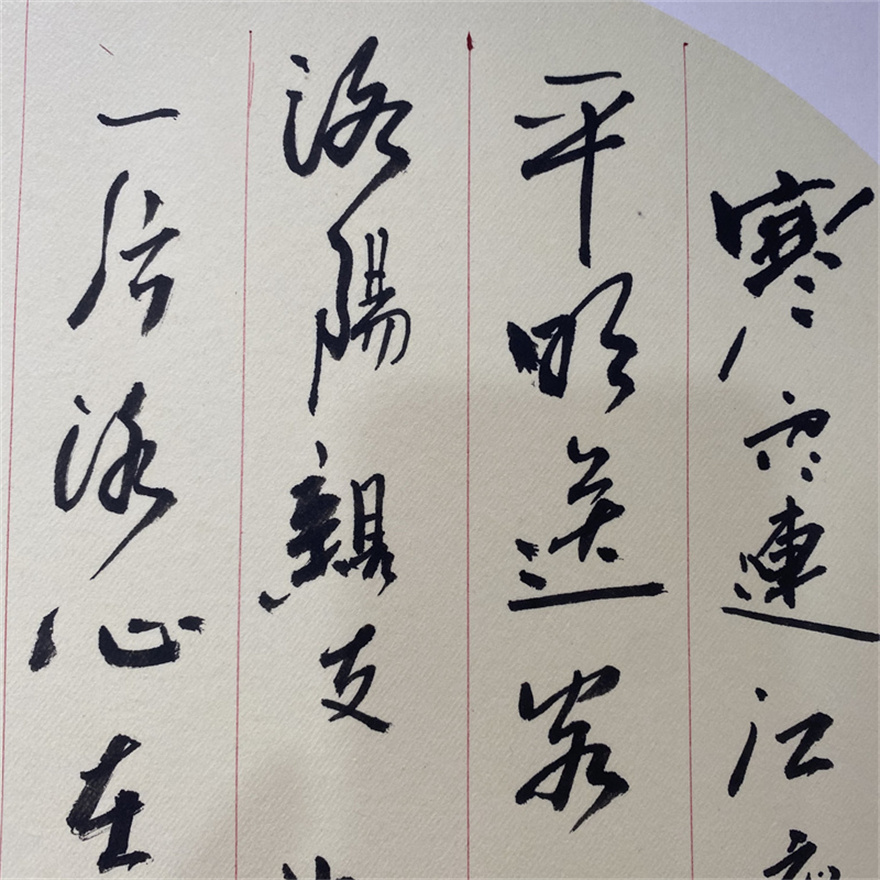 寒雨連江
平明送客
洛陽親友
一片冰心在